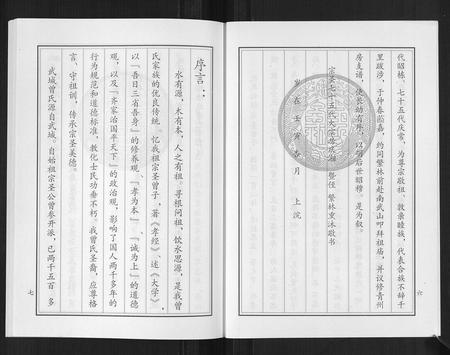 代昭栋、七十五代庆常，为尊宗敬祖、敦亲睦族，代表合族不辞千
里跋涉，于仲春莅嘉，约同繁林前赴南武山叩拜祖庙，并议修青州
房支谱，使长幼有序，以
后世昭穆，是为叙。
宗圣七十五代大宗
繁林熏沐敬书
岁在壬寅
月 上浣
六
序言：
水有源，木有本，人之有祖，寻根问祖，饮水思源，是我曾
氏家族的优良传统。忆我祖宗圣曾子，著《孝经》、述《大学》，
以“吾日三省吾身”的修养观、“孝为本”、“诚为上”的道德
观，以及“齐家治国平天下”的政治观，影响了国人两千多年的
行为规范和道德标准，教化士民功垂不朽。我曾氏圣裔，应尊格
言、守祖训，传承宗圣美德。
武城曾氏源自武城。自始祖宗圣公曾参开派，已两千五百多
七